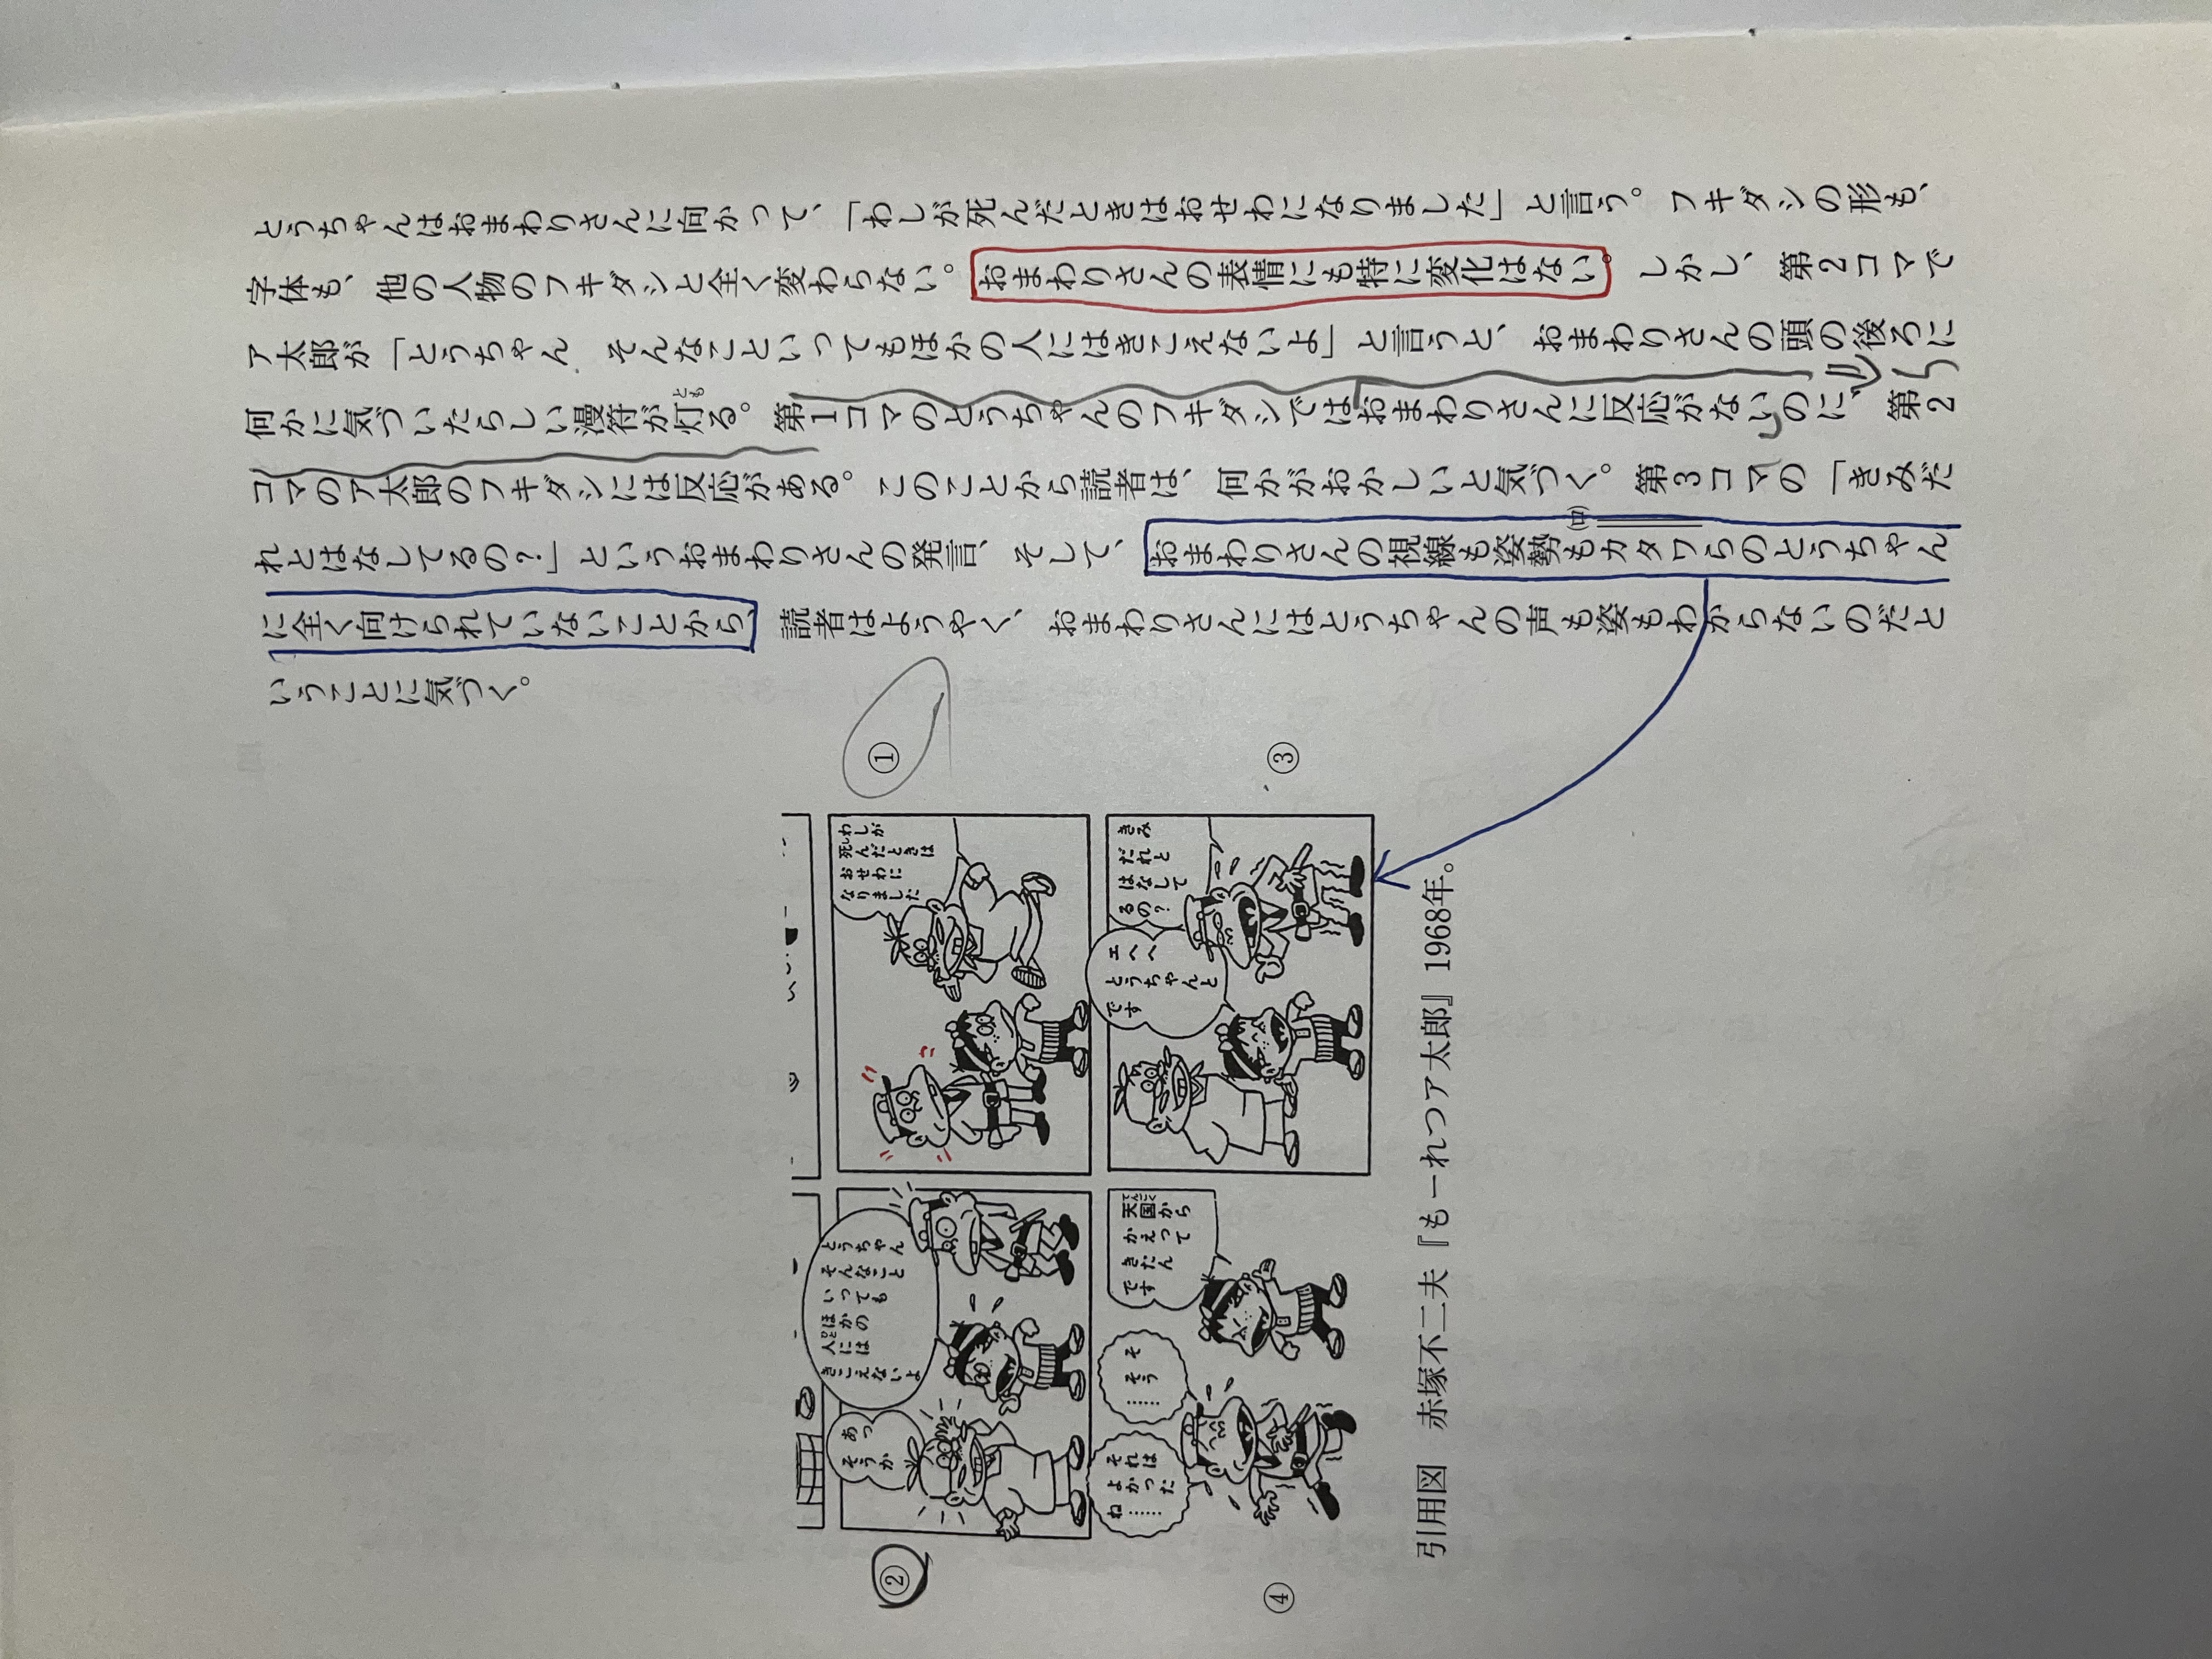 とうちゃんはおまわりさんに向かって、「わしが死んだときはおせわになりました」と言う。フキダシの形も、
字体も、他の人物のフキダシと全く変わらない。おまわりさんの表情にも特に変化はない。しかし、第2コマで
ア太郎が「とうちゃん そんなこといってもほかの人にはきこえないよ」と言うと、おまわりさんの頭の後ろに
何かに気づいたらしい漫符が灯る。第1コマのとうちゃんのフキダシではおまわりさんに反応がないのに、第2
とも
コマのア太郎のフキダシには反応がある。このことから読者は、何かがおかしいと気づく。第3コマの「きみだ
れとはなしてるの?」というおまわりさんの発言、そして、おまわりさんの視線も姿勢もカタワらのとうちゃん
(ロ)
に全く向けられていないことから、読者はようやく、おまわりさんにはとうちゃんの声も姿もわからないのだと
いうことに気づく。
①
わしが
死んだときは
し
おせわに
なりました
②
とうちゃん
そんなこと
いっても
ほかの
人には
ひと
きこえないよ
あっ
そうか
③
きみ
だれと
はなして
るの?
エへへ
とうちゃんと
です
④
天国から
てんごく
かえって
きたん
です
そ
そう
……
それは
よかった
ね……
引用図 赤塚不二夫『もーれつア太郎』1968年。